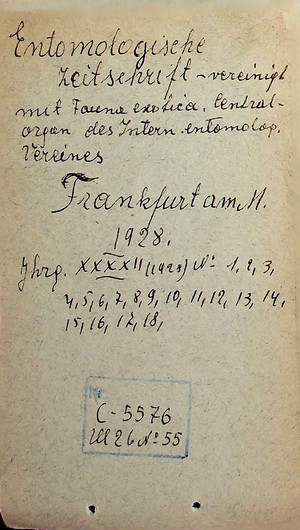 Entomologische
Zeitschrift – vereinigt
mit Fauna exotica. Central-
organ des Intern. entomolog.
Vereines
Frankfurt am M.
1928.
Jhrg. XXXXII (1928) № 1, 2, 3,
4, 5, 6, 7, 8, 9, 10, 11, 12, 13, 14,
15, 16, 17, 18,
№
C-5576
Ш 26 № 55